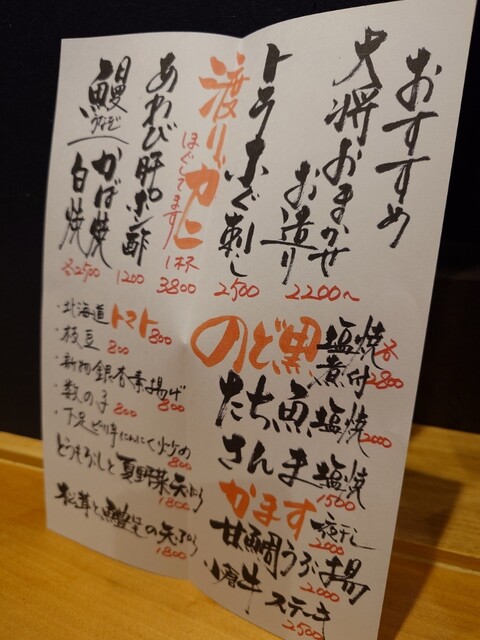 おすすめ
大将おまかせ
お造り
2200〜
トラふぐ刺し
2500
渡りガニ
ほぐしてます
1杯
3800
あわび肝ポン酢
1200
鰻
うなぎ
かば焼
白焼
各2500
のど黒
塩焼
煮付
各2800
たち魚塩焼
2000
さんま塩焼
1500
かます
一夜干し
2000
甘鯛うろこ揚
2000
小倉牛ステーキ
2500
・北海道トマト
800
・枝豆
800
・新物銀杏素揚げ
800
・数の子
800
・下足ピリ辛にんにく炒め
800
とうもろこしと夏野菜天ぷら
1800
松茸と鱧の天ぷら
1800